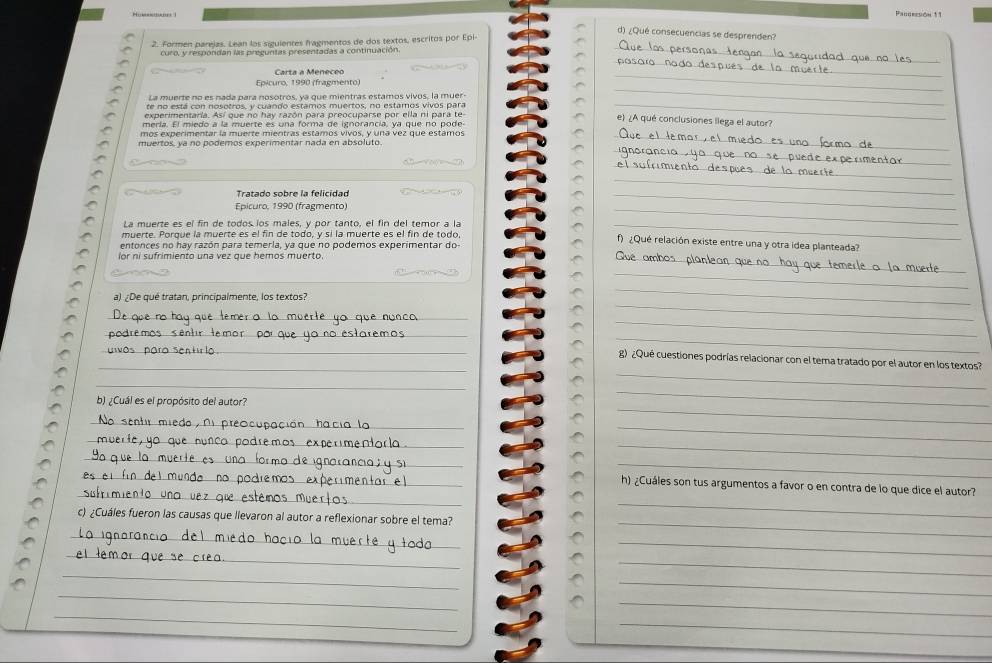 Humanidades 1
2. Formen parejas. Lean los siguientes fragmentos de dos textos, escritos por Epi-
curo, y respondan las preguntas presentadas a continuación.
Carta a Meneceo
Epicuro, 1990 (fragmento)
La muerte no es nada para nosotros, ya que mientras estamos vivos, la muer-
te no está con nosotros, y cuando estamos muertos, no estamos vivos para
experimentarla. Así que no hay razón para preocuparse por ella ni para te-
merla. El miedo a la muerte es una forma de ignorancia, ya que no pode-
mos experimentar la muerte mientras estamos vivos, y una vez que estamos
muertos, ya no podemos experimentar nada en absoluto.
Tratado sobre la felicidad
Epicuro, 1990 (fragmento)
La muerte es el fin de todos los males, y por tanto, el fin del temor a la
muerte. Porque la muerte es el fin de todo, y si la muerte es el fin de todo,
entonces no hay razón para temerla, ya que no podemos experimentar do-
lor ni sufrimiento una vez que hemos muerto.
a) ¿De qué tratan, principalmente, los textos?
De que no hay que temer a la muerte ya que nunca
podremos sentir temor por que ya no estaremos
vivos para sentirlo.
b) ¿Cuál es el propósito del autor?
No sentir miedo, ni preocupación hacia la
muerte, ya que nunca podremos experimentarla.
Ya que la muerte es una forma de ignorancia; y si
es el fin del mundo no podremos experimentar el
sufrimiento una vez que estemos muertos
c) ¿Cuáles fueron las causas que llevaron al autor a reflexionar sobre el tema?
La ignorancia del miedo hacia la muerte y todo
el temor que se crea.
Progresión 11
d) ¿Qué consecuencias se desprenden?
Que las personas tengan la seguridad que no les
pasara nada despues de la muerte.
e) ¿A qué conclusiones llega el autor?
Que el temor, el miedo es una forma de
ignorancia, ya que no se puede experimentar
el sufrimiento despues de la muerte
f) ¿Qué relación existe entre una y otra idea planteada?
Que ambos plantean que no hay que temerle a la muerte
g) ¿Qué cuestiones podrías relacionar con el tema tratado por el autor en los textos?
h) ¿Cuáles son tus argumentos a favor o en contra de lo que dice el autor?